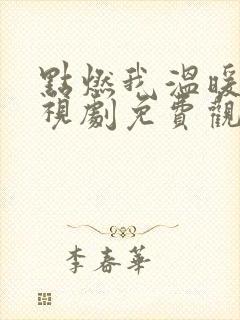 點燃我溫暖
視劇免費觀
李春華